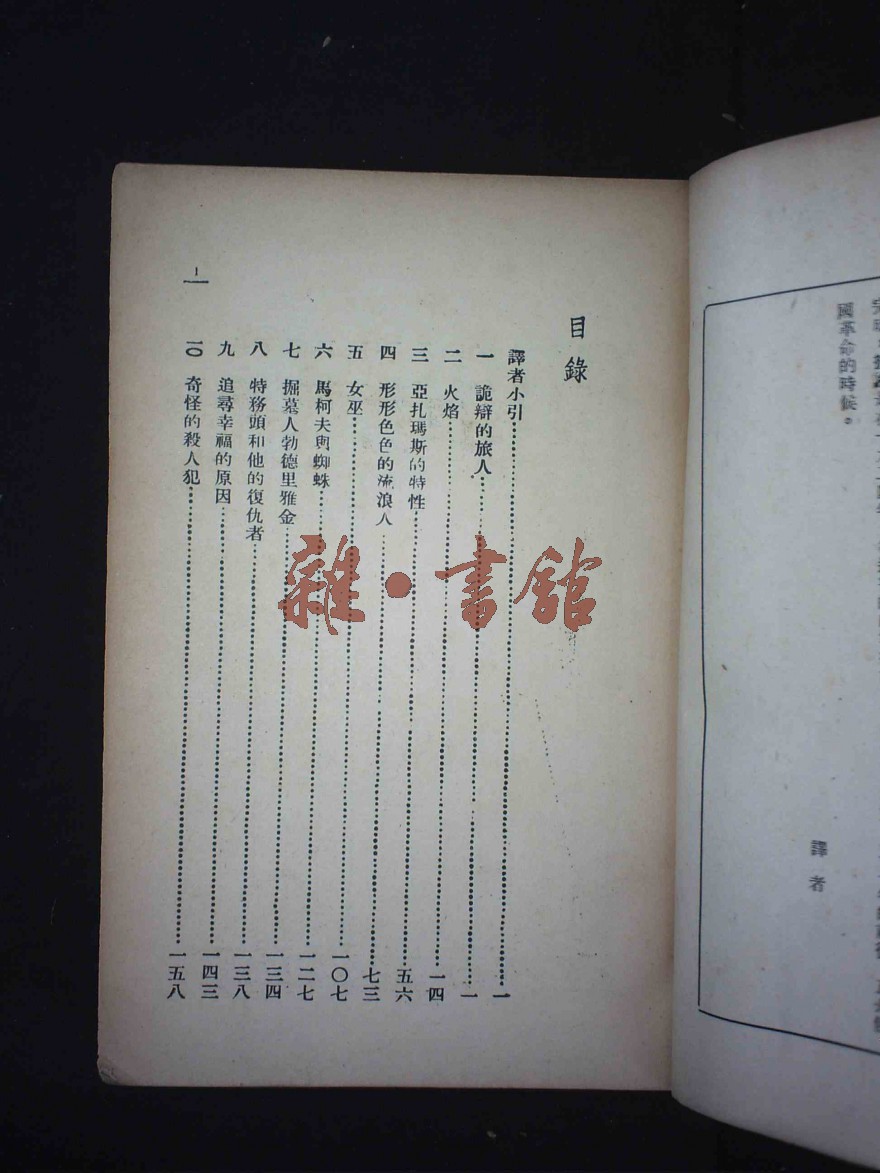 國革命的時候。
譯者
目錄
譯者小引……一
一 詭辯的旅人……一
二 火焰……一四
三 亞扎瑪斯的特性……五六
四 形形色色的流浪人……七三
五 女巫……一〇七
六 馬柯夫與蜘蛛……一二七
七 掘墓人勃德里雅金……一三四
八 特務頭和他的復仇者……一三八
九 追尋幸福的原因……一四三
一〇 奇怪的殺人犯……一五八
1
雜·書館